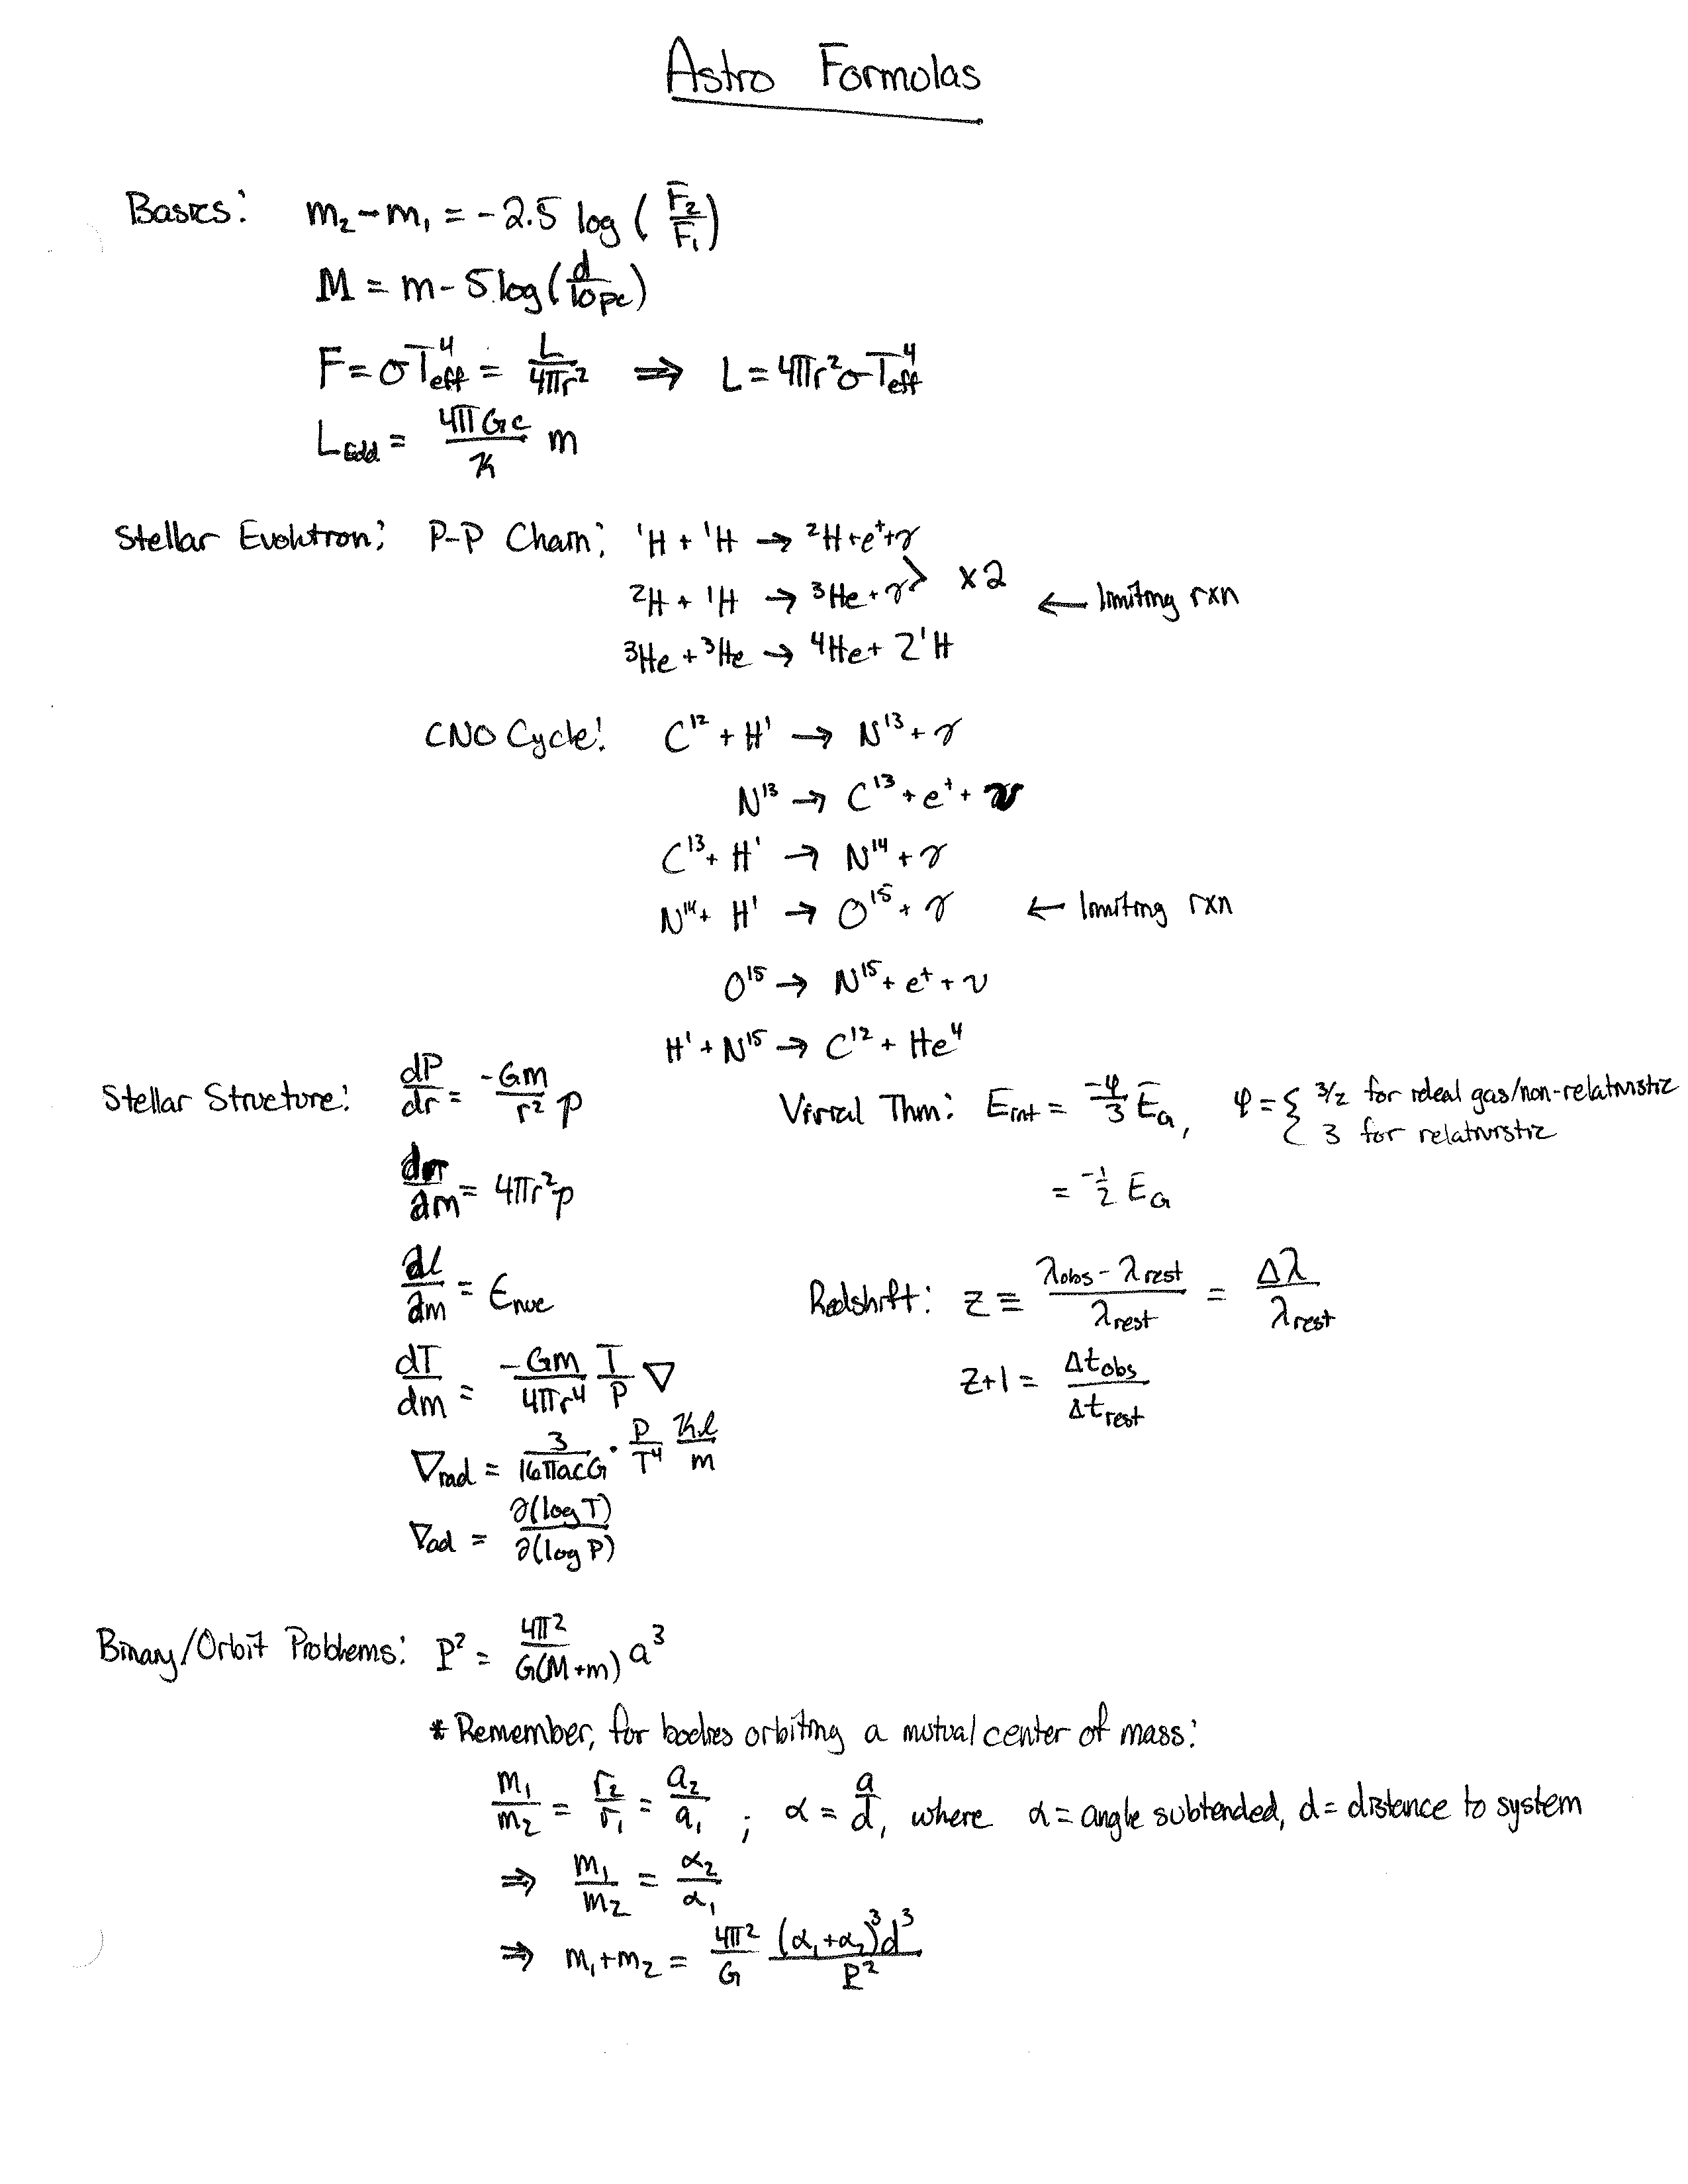 Astro Formulas
Basics: m₂-m₁ = -2.5 log (F₂/F₁)
M = m - 5 log(d/10pc)
F = σT⁴eff = L/4πr² ⇒ L = 4πr²σT⁴eff
L Edd. = 4πGc/κ m
Stellar Evolution: P-P Chain: ¹H + ¹H → ²H + e⁺ + γ
²H + ¹H → ³He + γ > x2 ← limiting rxn
³He + ³He → ⁴He + 2¹H
CNO Cycle: C¹² + H¹ → N¹³ + γ
N¹³ → C¹³ + e⁺ + ν
C¹³ + H¹ → N¹⁴ + γ
N¹⁴ + H¹ → O¹⁵ + γ ← limiting rxn
O¹⁵ → N¹⁵ + e⁺ + ν
H¹ + N¹⁵ → C¹² + He⁴
Stellar Structure: dP/dr = -Gm/r² ρ
dr/dm = 4πr²ρ
dl/dm = ε nuc
dT/dm = -Gm/4πr⁴ T/P ∇
∇rad = 3/16πacG · P/T⁴ κl/m
∇ad = ∂(log T)/∂(log P)
Virial Thm: E int = -φ/3 E G, φ = { 3/2 for ideal gas/non-relativistic
3 for relativistic
= -1/2 E G
Redshift: z ≡ λobs - λrest/λrest = Δλ/λrest
z+1 = Δt obs/Δt rest
Binary/Orbit Problems: P² = 4π²/G(M+m) a³
* Remember, for bodies orbiting a mutual center of mass:
m₁/m₂ = r₂/r₁ = a₂/a₁ ; α = a/d, where α = angle subtended, d = distance to system
⇒ m₁/m₂ = α₂/α₁
⇒ m₁+m₂ = 4π²/G (α₁+α₂)³d³/P²